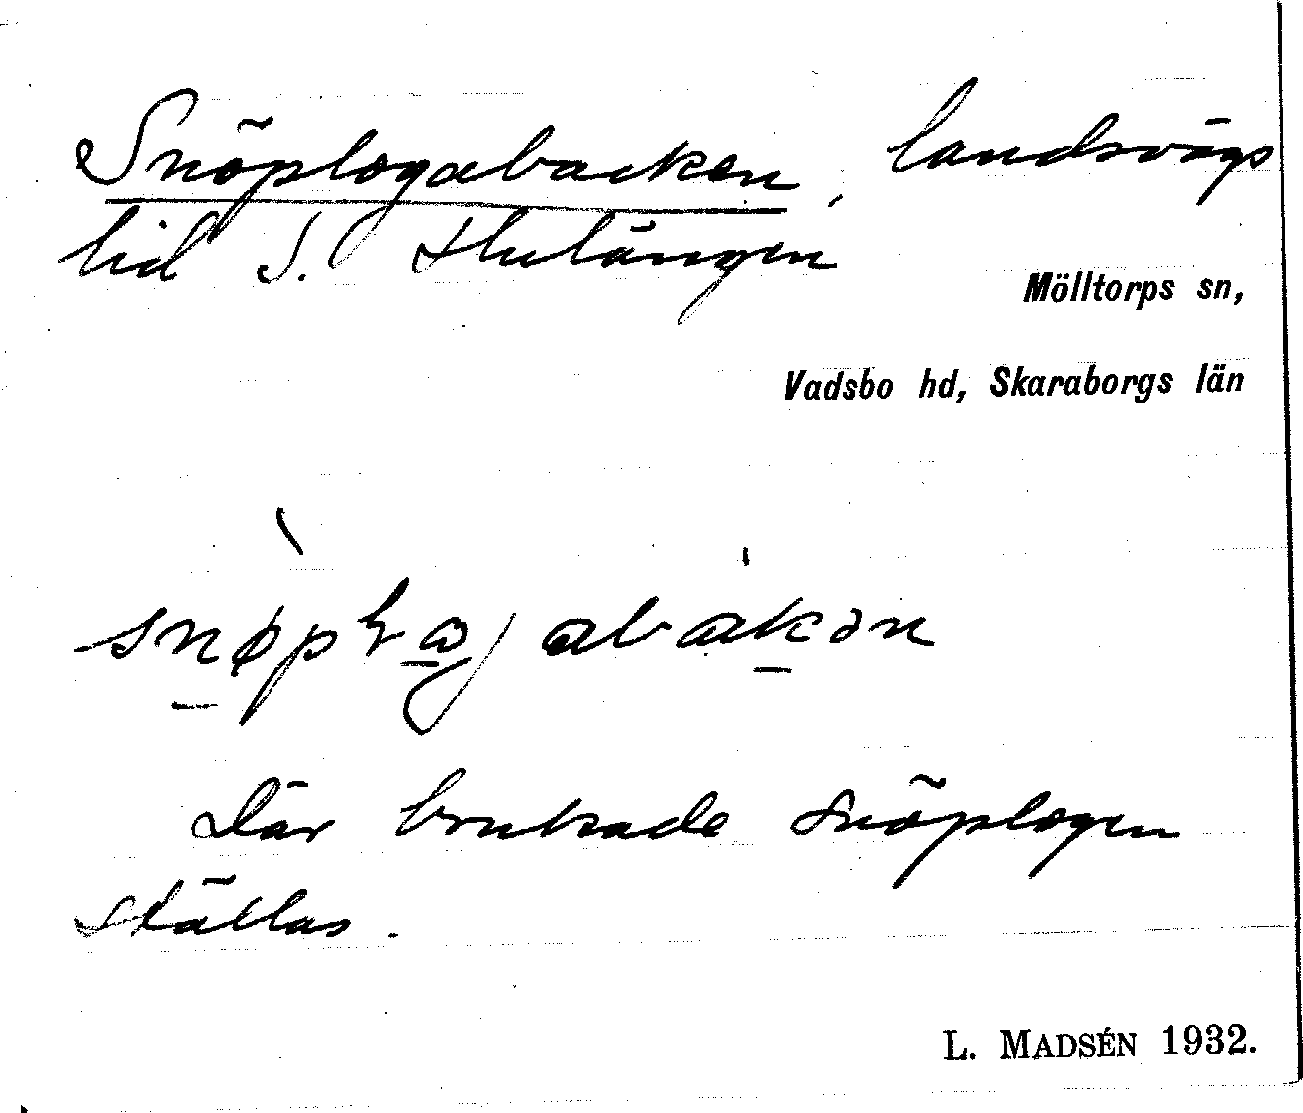 Snöplogabacken, landsvägs
lid S. Hulängen
Mölltorps sn,
Vadsbo hd, Skaraborgs län
Där brukade snöplogen
ställas.
L. MADSÉN 1932.